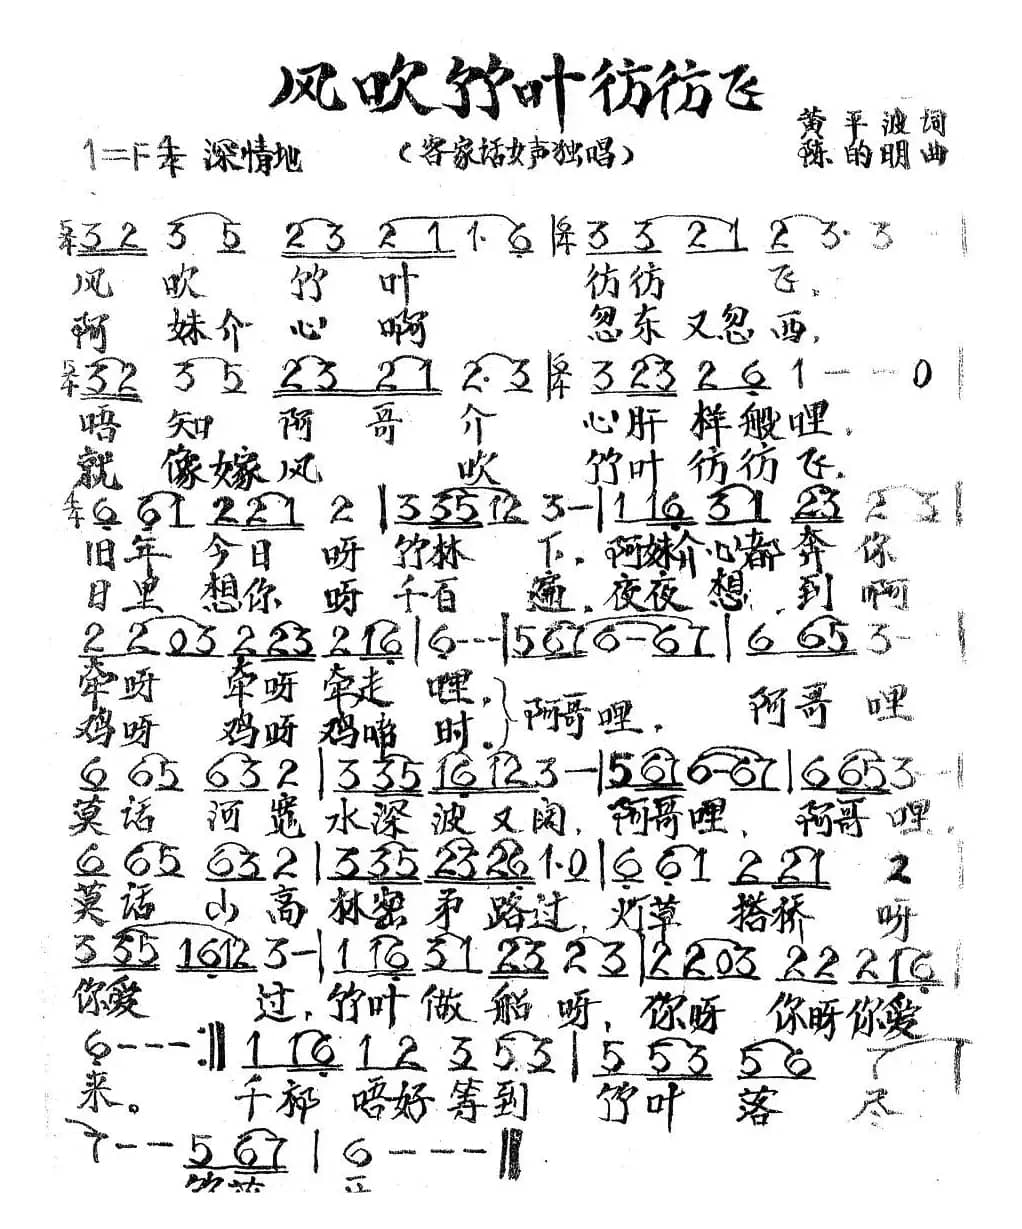 风吹竹叶彷彷飞
黄平波词
1=F 4/4 深情地 (客家话女声独唱) 陈的明曲
5/4 32 35 23 21 1·6 | 5/4 33 21 23· 3--|
风吹竹叶彷彷飞,
阿妹介心啊忽东又忽西,
5/4 32 35 23 21 2·3 | 5/4 323 26 1---0|
唔知阿哥介心肝样般哩.
就像嫁风吹竹叶彷彷飞.
4/4 661 221 2 | 33512 3- | 116 31 23 23|
旧年今日呀竹林下,阿妹介心都奔你
日里想你呀千百遍,夜夜想,到啊
2203 223 216 | 6--- | 567 6-67 | 6 65 3--|
牵呀牵呀牵走哩,阿哥哩,阿哥哩
鸡呀鸡呀鸡啼时。
6 65 63 2 | 3 35 1612 3- | 567 6-67 | 665 3--|
莫话河宽水深波又阔,阿哥哩,阿哥哩,
6 65 63 2 | 3 35 2326 1·0 | 6 61 2 21 2|
莫话山高林密弟路过,火草搭桥呀
3 35 1612 3- | 1 16 31 23 23 | 2203 22 216|
你爱过,竹叶做船呀,你呀你呀你爱
6---:‖ 1 16 12 3 53 | 5 53 56 7|
来。千祁唔好等到竹叶落尽
7-- 5 67 | 6---‖